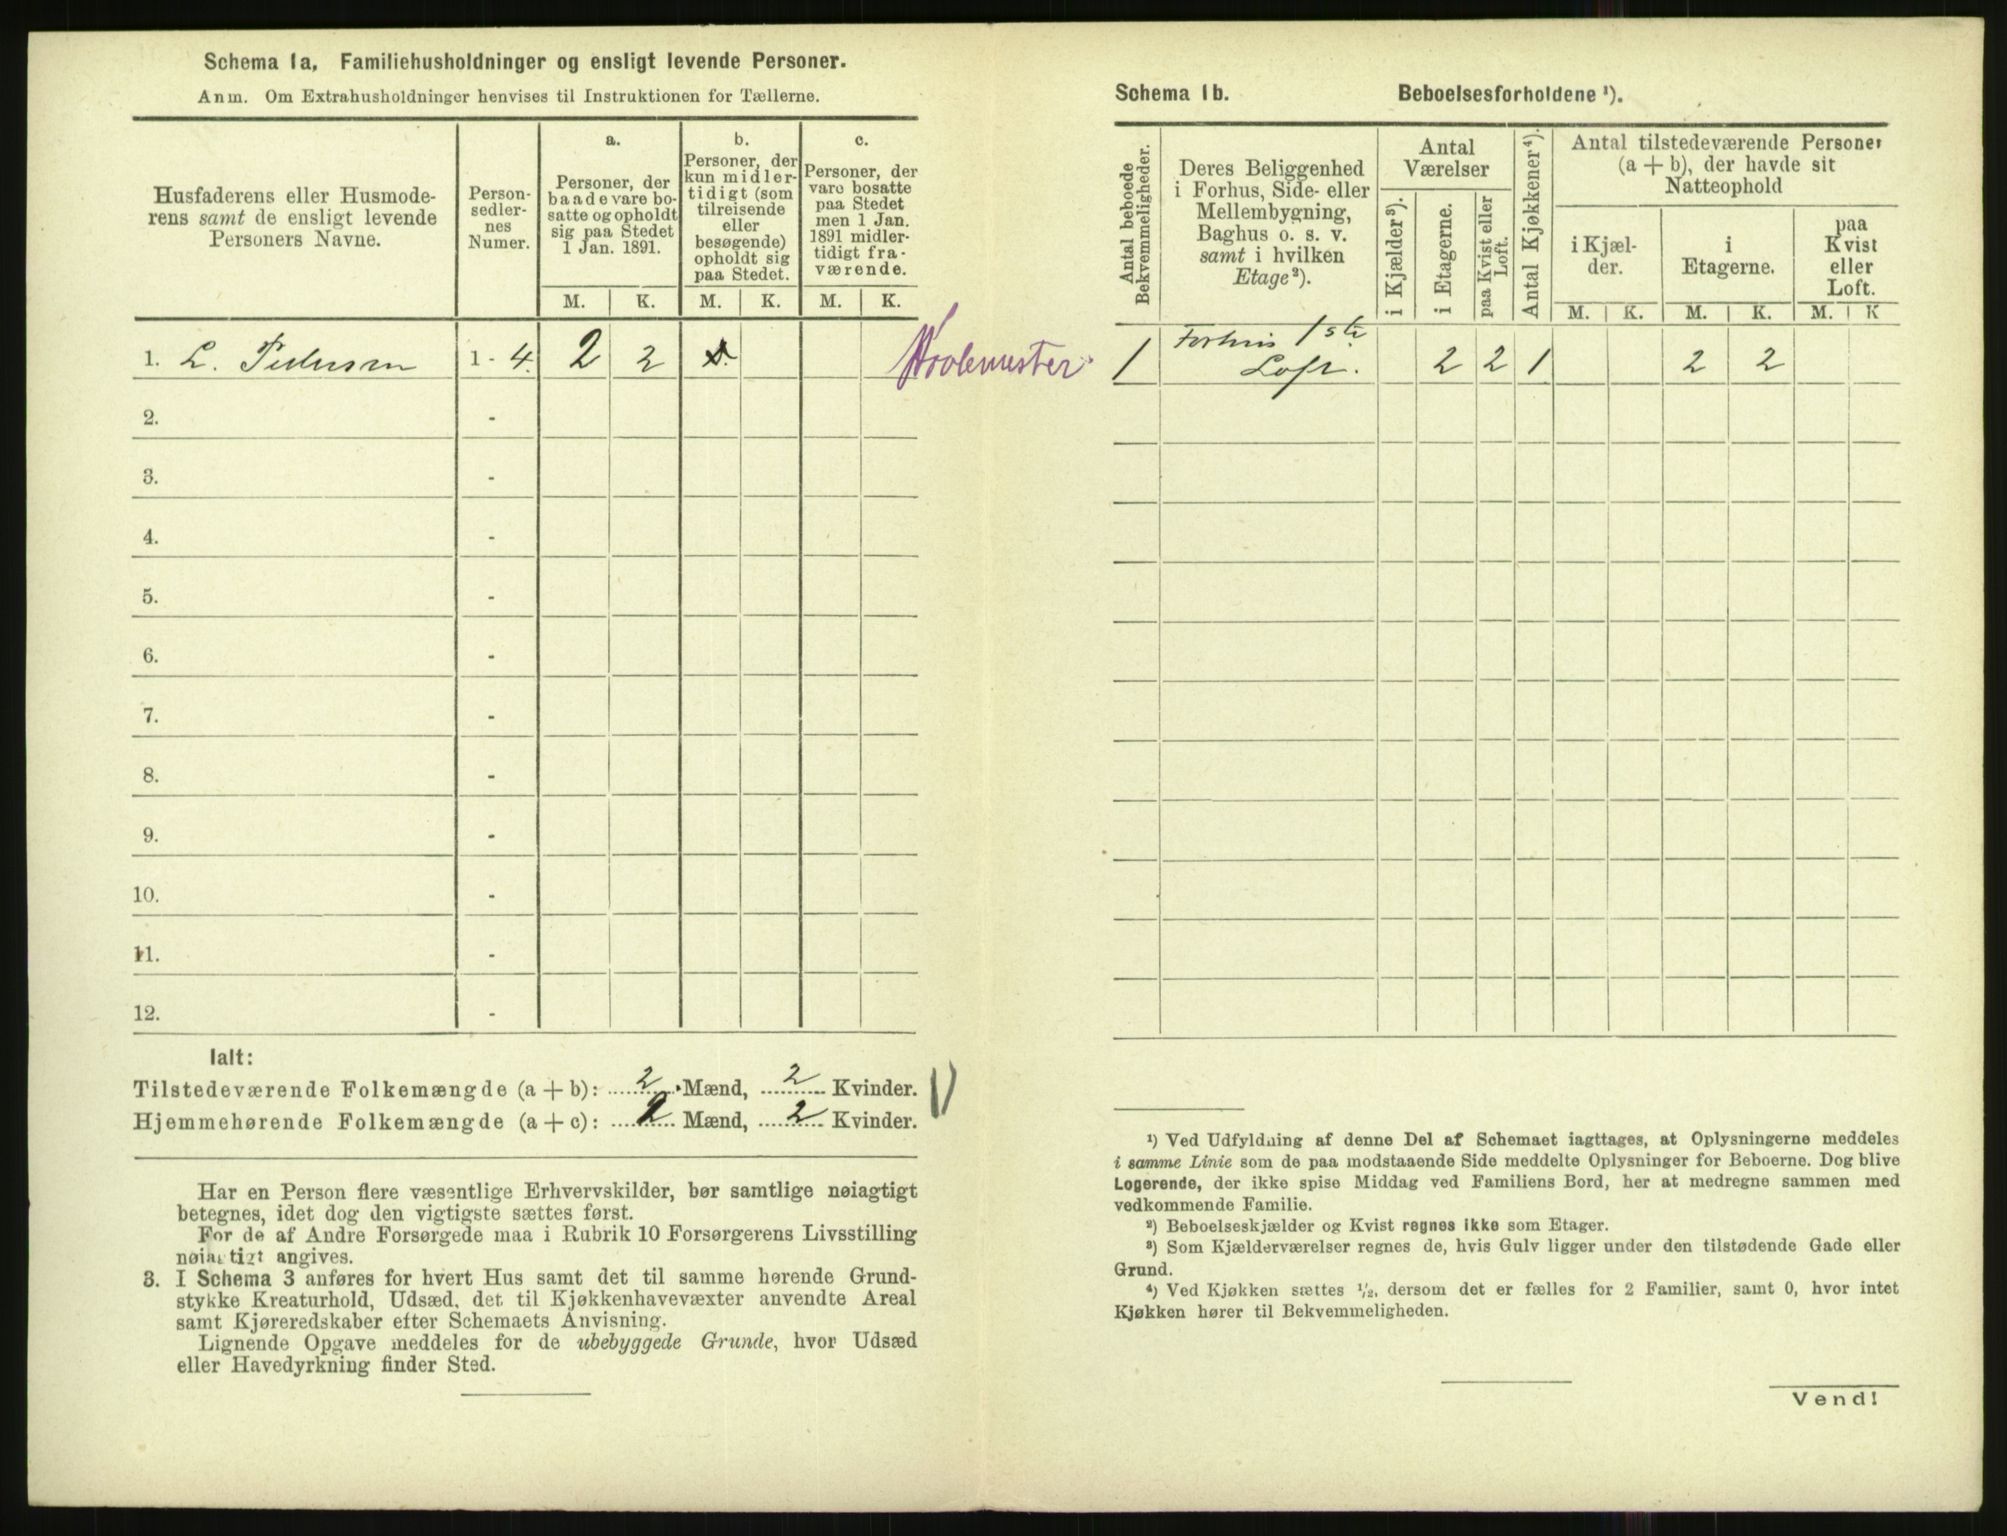 Schema 1a, Familiehusholdninger og ensligt levende Personer.
Anm. Om Extrahusholdninger henvises til Instruktionen for Tællerne.
Husfaderens eller Husmode-
rens samt de ensligt levende
Personers Navne.
Person-
sedler-
nes
Numer.
a.
Personer, der
baade vare bo-
satte og opholdt
sig paa Stedet
1 Jan. 1891.
b.
Personer, der
kun midler-
tidigt (som
tilreisende
eller
besøgende)
opholdt sig
paa Stedet.
c.
Personer, der
vare bosatte
paa Stedet
men 1 Jan.
1891 midler-
tidigt fra-
værende.
M. K. M. K. M. K.
1. L. Pedersen 1 - 4. 2 2
2. -
3. -
4. -
5. -
6. -
7. -
8. -
9. -
10. -
11. -
12. -
Ialt:
Tilstedeværende Folkemængde (a + b): 2 Mænd, 2 Kvinder.
Hjemmehørende Folkemængde (a + c): 2 Mænd, 2 Kvinder.
Har en Person flere væsentlige Erhvervskilder, bør samtlige nøiagtigt
betegnes, idet dog den vigtigste sættes først.
For de af Andre Forsørgede maa i Rubrik 10 Forsørgerens Livsstilling
nøiagtigt angives.
3. I Schema 3 anføres for hvert Hus samt det til samme hørende Grund-
stykke Kreaturhold, Udsæd, det til Kjøkkenhavevæxter anvendte Areal
samt Kjøreredskaber efter Schemaets Anvisning.
Lignende Opgave meddeles for de ubebyggede Grunde, hvor Udsæd
eller Havedyrkning finder Sted.
Schema 1b. Beboelsesforholdene ¹).
Antal beboede
Bekvemmeligheder.
Deres Beliggenhed
i Forhus, Side- eller
Mellembygning,
Baghus o. s. v.
samt i hvilken
Etage ²).
Antal
Værelser
i Kjælder ³).
i Etagerne.
paa Kvist eller
Loft.
Antal Kjøkkener ⁴).
Antal tilstedeværende Personer
(a + b), der havde sit
Natteophold
i Kjæl-
der.
i
Etagerne.
paa
Kvist
eller
Loft.
M. K. M. K. M. K
1 Forhus 1ste
Loft. 2 2 1 2 2
¹) Ved Udfyldning af denne Del af Schemaet iagttages, at Oplysningerne meddeles
i samme Linie som de paa modstaaende Side meddelte Oplysninger for Beboerne. Dog blive
Logerende, der ikke spise Middag ved Familiens Bord, her at medregne sammen med
vedkommende Familie.
²) Beboelseskjælder og Kvist regnes ikke som Etager.
³) Som Kjælderværelser regnes de, hvis Gulv ligger under den tilstødende Gade eller
Grund.
⁴) Ved Kjøkken sættes ½, dersom det er fælles for 2 Familier, samt 0, hvor intet
Kjøkken hører til Bekvemmeligheden.
Vend!